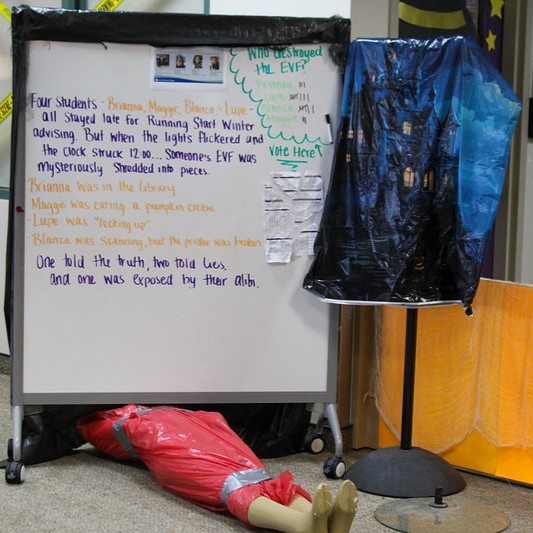 Who destroyed
the EVF?
Brianna
Lupe
Blanca
Maggie
Vote Here
Four Students - Brianna, Maggie, Blanca, & Lupe -
all Stayed late for Running Start Winter
advising. But when the lights flickered and
the Clock struck 12:00... Someone's EVF was
mysteriously Shredded into pieces.
-Brianna was in the Library
-Maggie was eating a pumpkin cookie
-Lupe was "locking up"
-Blanca was scanning, but the printer was broken
One told the truth, two told lies,
and one was exposed by their alibi.